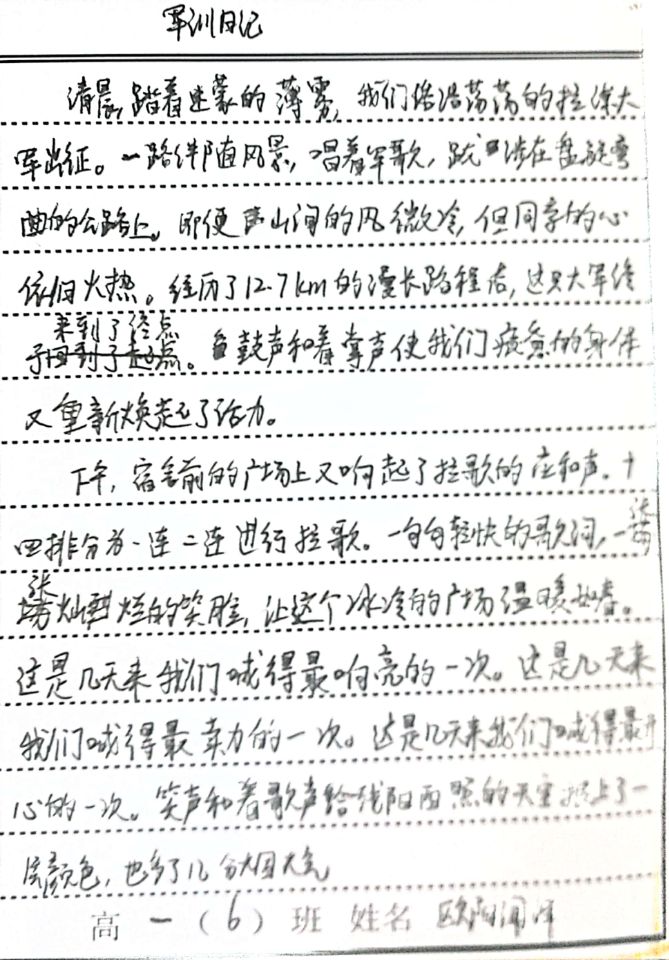 军训日记
清晨,踏着迷蒙的薄雾,我们浩浩荡荡的拉练大
军出征。一路伴随风景,唱着军歌,跋涉在盘旋弯
曲的公路上。即便山间的风微冷,但同学的心
依旧火热。经历了12.7km的漫长路程后,这只大军终
来到了终点
于回到了起点。鼓声和着掌声使我们疲惫的身体
又重新焕起了活力。
下午,宿舍前的广场上又响起了拉歌的应和声。十
四排分为一连二连进行拉歌。一句句轻快的歌词,一张
张灿烂的笑脸,让这个冰冷的广场温暖如春。
这是几天来我们喊得最响亮的一次。这是几天来
我们喊得最卖力的一次。这是几天来我们喊得最开
心的一次。笑声和着歌声给残阳西照的天空抹上了一
层颜色,也多了几分
高一(6)班 姓名 欧阳